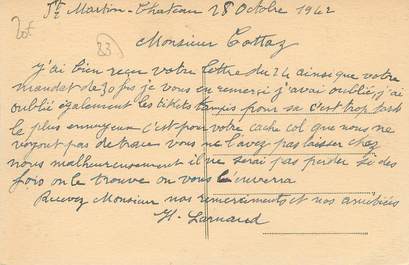 St Martin-Chateau 28 Octobre 1942
20f
33
Monsieur Cottaz
J'ai bien reçu votre lettre du 24 ainsi que votre
mandat de 30 frs je vous en remerci j'avai oublié, j'ai
oublié également les tikets tampis pour sa c'est trop tard
le plus ennuyeux c'est pour votre cache col que nous ne
voyont pas de trace vous ne l'avez pas laisser chez
nous malheureusement il ne serai pas perdu si des
fois on le trouve on vous l'enverra
Recevez Monsieur nos remerciments et nos amitiées
H. Larnaud